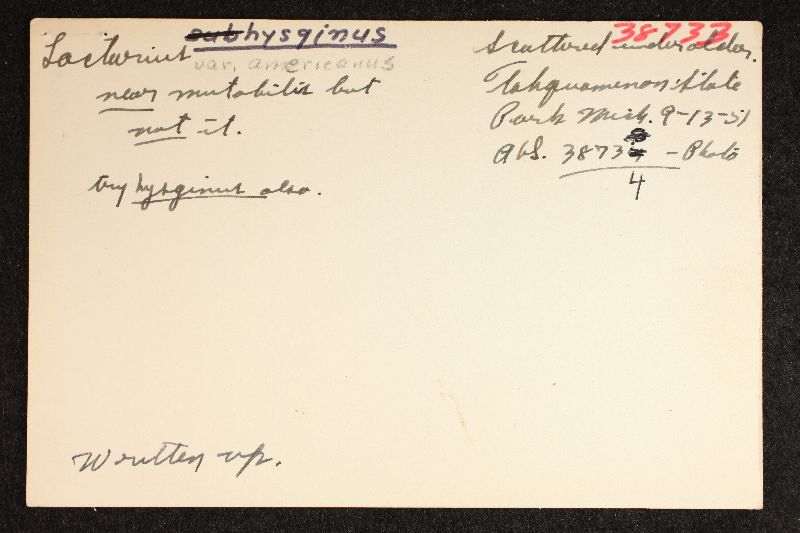 Lactarius subhysginus
var. americanus
near mutabilis but
not it.
try hysginus also.
Written up.
38733
Scattered under alder.
Tahquamenon State
Park Mich. 9-13-51
AHS. 3873 - Photo
4